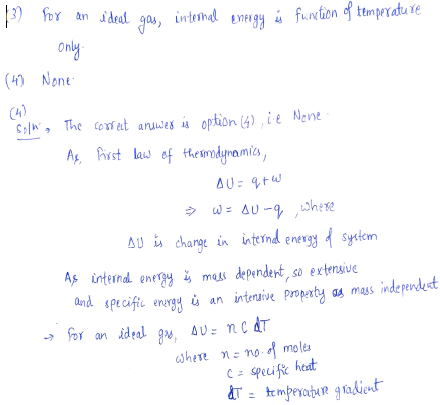 (3) For an ideal gas, internal energy is function of temperature
only.
(4) None.
(4)
Solnː → The correct answer is option (4), i.e None.
As, First law of thermodynamics,
ΔU = q + w
⇒ w = ΔU - q , where
ΔU is change in internal energy of system
As internal energy is mass dependent, so extensive
and specific energy is an intensive property as mass independent
→ For an ideal gas, ΔU = n C dT
where n = no. of moles
C = specific heat
dT = temperature gradient